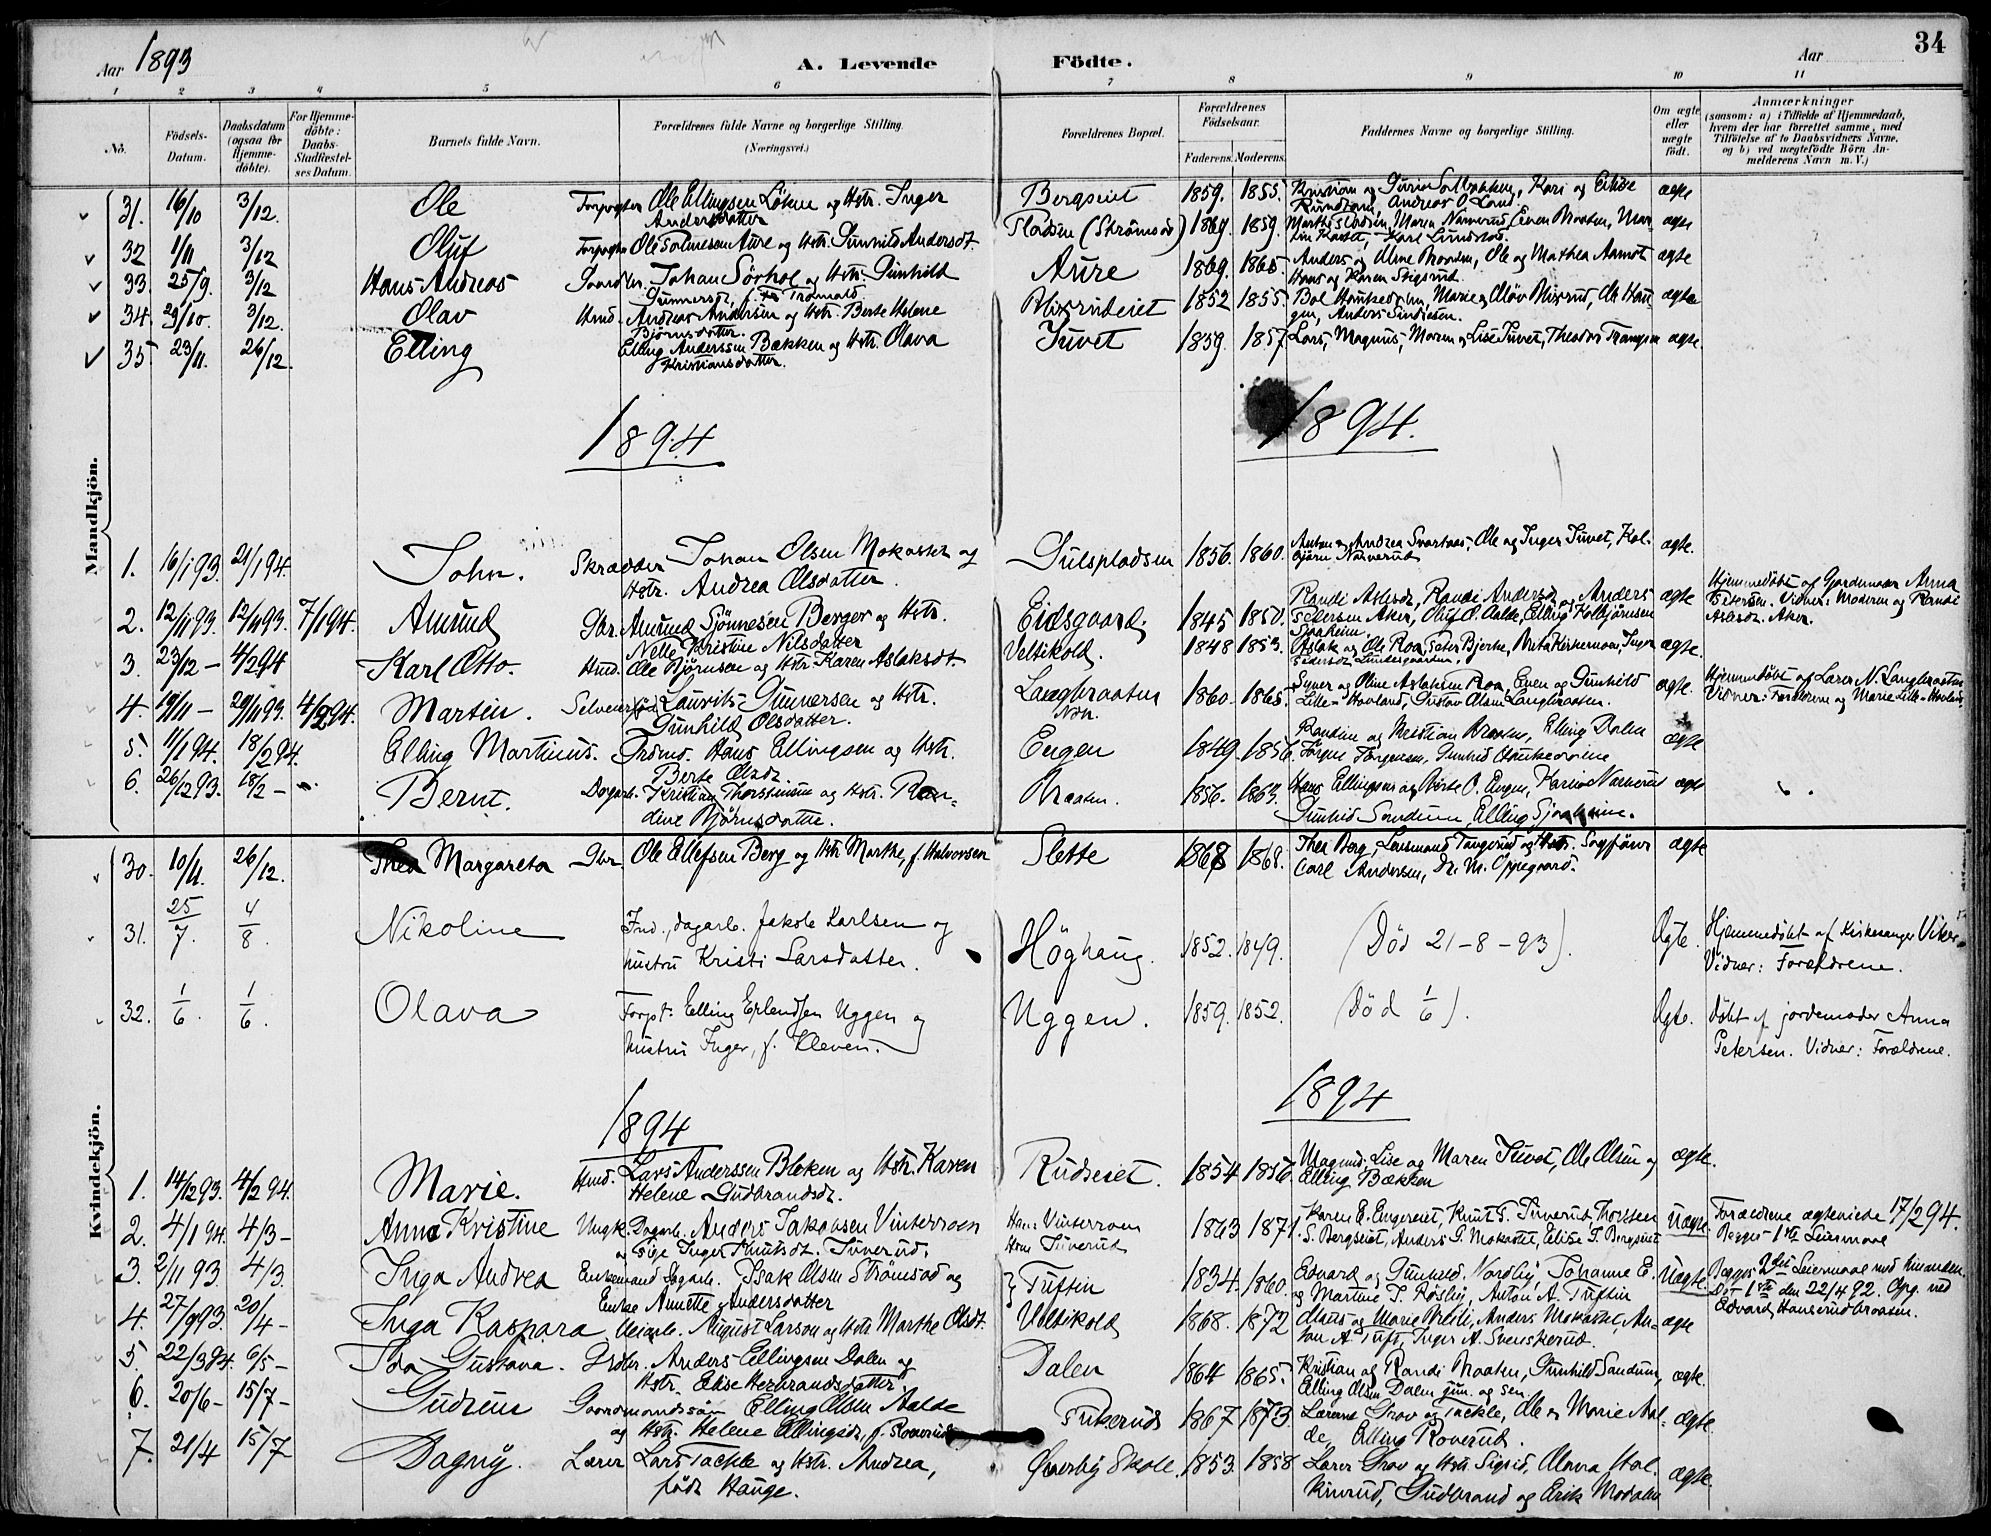 34
Aar 1893
A. Levende Födte.
Aar
1 2 3 4 5 6 7 8 9 10 11
No.
Födsels-Datum.
Daabsdatum (ogsaa for Hjemmedöbte).
For Hjemmedöbte: Daabs-Stadfæstelses Datum.
Barnets fulde Navn.
Forældrenes fulde Navne og borgerlige Stilling. (Næringsvei.)
Forældrenes Bopæl.
Forældrenes Födselsaar.
Faderens. Moderens.
Faddernes Navne og borgerlige Stilling.
Om ægte eller uægte födt.
Anmærkninger
(saasom: a) i Tilfælde af Hjemmedaab, hvem der har forrettet samme, med Tilföielse af to Daabsvidners Navne, og b) ved uægtefödte Börn Anmelderens Navn m. V.)
Mandkjön.
31. 16/10 3/12. Ole Ole Ellingsen Löken og Hstr. Inger Andersdatter Bergseiet 1859. 1855. ægte
32 1/11 3/12 Oluf Ole Salmesen Aure og Hstr. Gunhild Andersdt. Pladsen (Strömsod) 1869. 1859. ægte
33. 25/9. 3/12 Hans Andreas Johan Sörhol og Hstr. Gunhild Gunnersdt. Aure 1869. 1865. Anders og Oline Moen, Ole og Mathea Aamot Hans og Karen Stigsrud. ægte
34. 29/10. 3/12. Olav Hmd. Andreas Andersen og Hstr. Berte Helene Björnsdatter. 1852 1855. ægte
35 23/11. 26/12. Elling Elling Anderssen Bækken og Hstr. Olava Kristiansdatter. Juvet 1859. 1857. Lars, Magnus, Maren og Lise Juvet, ægte
1894
1894.
1. 16/1 93. 21/1 94. John. Skrædder Johan Olsen Mokastet og Hstr. Andrea Olsdatter. Gulspladsen 1856. 1860. Anton og Andrea Svartaas, Ole og Inger Juvet, Kolbjörn Narverud ægte.
2. 12/11 93. 12/11 93. 7/1 94. Amund Gbr. Amund Sjönnesen Berger og Hstr. Nelle Kristine Nilsdatter Eidsgaard. 1845 1850. Randi Aslesdt, Randi Andersdt og Anders Petersen Aker, Oluf O. Aalde, Elling Kolbjörnsen Sjoaheim. ægte Hjemmedöbt af Gjordemoder Anna Petersen. Vidner: Moderen og Randi Aslesdt. Aker.
3. 23/12 — 4/2 94 Karl Otto. Hmd. Ole Björnsen og Hstr. Karen Aslaksdt Veltikold. 1848 1853. Aslak og Ole Roa, Peter Bjerke, Berta Kirkemoen, Inger Pedersdt. Lundesgaarden. ægte.
4. 19/11 — 29/11 93. 4/2 94. Martin. Laurits Gunnersen og Hstr. Gunhild Olsdatter. Langbraaten Ndr. 1860. 1865. Syver og Oline Aslaksen Roa, Even og Gunhild Lille-Hovland, Gustav Olsen Langbraaten. ægte. Hjemmedöbt af Lærer N. Langbraaten Vidner: Forældrene og Marie Lille-Hovland.
5. 11/1 94. 18/2 94. Elling Martinus. Hans Ellingsen og Hstr. Berte Olsdt. Engen 1849 1856. Randine og Kristian Braaten, Elling Dalen Jörgen Jörgensen, Gunhild ægte
6. 26/12 93. 18/2 — Bernt. Dagarb. Kristian Thorstensen og Hstr. Randine Björnsdatter. Braaten. 1856. 1863. Hans Ellingsen og Berte O. Engen, Karine Narverud Gunhild Sandum, Elling Sjoaheim. ægte
Kvindekjön.
30. 10/11. 26/12. Thea Margareta Gbr. Ole Ellefsen Berg og Hstr Marthe, f. Halvorsen Slette 1868 1868. Thea Berg, Lensmand Tangerud og Hstr. Sagförer Carl Andersen, Dr. M. Oppegaard. ægte
31. 25/7. 4/8. Nikoline Ind., dagarb. Jakob Karlsen og hustru Kristi Larsdatter. Höghaug. 1852. 1849. (Död 21-8-93). Ægte. Hjemmedöbt af Kirkesanger Viker. Vidner: Forældrene.
32. 1/6. 1/6. Olava Forpt. Elling Erlendsen Uggen og hustru Inger, f. Kleven. Uggen. 1859. 1852. (Död 1/6). Ægte. Döbt af jordemoder Anna Petersen. Vidner: Forældrene.
1894
1894
1. 14/12 93. 4/2 94. Marie. Hmd. Lars Anderssen Bleken og Hstr. Karen Helene Gudbrandsdt. Rudseiet. 1854 1856. Magnus, Lise og Maren Juvet, Ole Olsen og Elling Bækken ægte.
2. 4/1 94. 4/3 — Anna Kristine Ungk. Dagarb. Anders Jakobsen Vinterroen og Pige Inger Knutsdt. Juverud. Han: Vinterroen Hun Juverud 1863 1871. Karen E. Engereiet, Knut S. Juverud, Thorsten S. Bergseiet, Anders G. Mokastet, Elise T. Bergseiet Uægte. Forældrene ægteviede 17/2 94. Begges 1ste Leiermaal
3. 2/11 93. 4/3. Inga Andrea Enkemand Dagarb. Isak Olsen Strömsod og Enke Annette Andersdatter Tuftin 1834. 1860. Edvard og Gunhild Nordby, Johanne E. og Martine J. Rosby, Anton A. Tuftin Uægte. Begges 2det Leiermaal med hinanden. Det 1ste den 22/4 92. Opg. ved Edvard Hanserudbraaten.
4. 27/9 93. 20/4 — Inga Kaspara Veiarb. August Larson og Hstr Marthe Olsdt. Veltikold 1868. 1872 Anders Mokastet, Anton A. Tuft, Inger A. Svenskerud. ægte
5. 22/3 94. 6/5 — Ida Gustava. Anders Ellingsen Dalen og Hstr. Elise Herbrandsdatter Dalen 1864 1865. Kristian og Randi Braaten, Gunhild Sandum, Elling Olsen Dalen jun. og sen. ægte.
6. 20/6 — 15/7 — Gudrun Gaardmandssön Elling Olsen Aalde og Hstr. Helene Ellingsdt, f. Roverud 1867 1873 Lærerne Grov og Tackle, Ole og Marie Aalde, Elling Roverud. ægte.
7. 21/4 15/7 Dagny. Lærer Lars Tackle og Hstr. Andrea, födt Hauge. Överby Skole. 1853. 1858 Lærer Grov og Hstr. Sigrid, Olava Halkinrud, Gudbrand og Erik Modalen ægte.